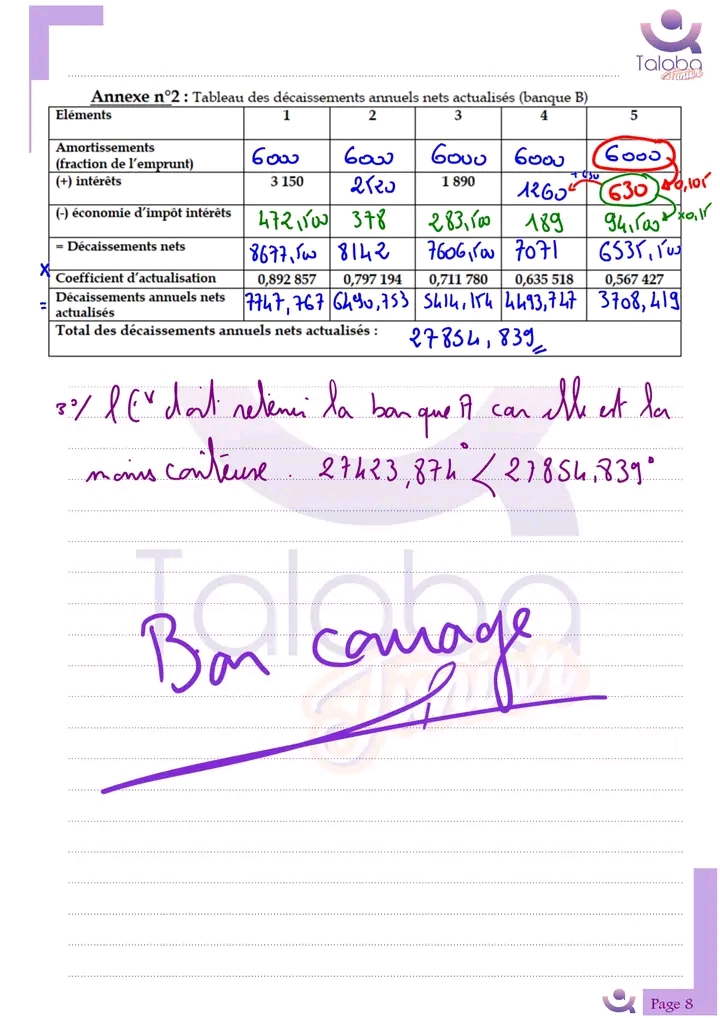 Taloba
Junior
Annexe n°2 : Tableau des décaissements annuels nets actualisés (banque B)
Eléments 1 2 3 4 5
Amortissements (fraction de l'emprunt) 6000 6000 6000 6000 6000
(+) intérêts 3 150 2520 1 890 1260 +630 630 x0,105
(-) économie d'impôt intérêts 472,500 378 283,500 189 94,500 x0,15
= Décaissements nets 8677,500 8142 7606,500 7071 6535,500
x Coefficient d'actualisation 0,892 857 0,797 194 0,711 780 0,635 518 0,567 427
= Décaissements annuels nets actualisés 7747,767 6490,753 5414,154 4493,747 3708,419
Total des décaissements annuels nets actualisés : 27854,839
3°/ l'Ese doit retenir la banque A car elle est la
moins coûteuse. 27423,874 < 27854,839
Taloba
Junior
Bon courage
Page 8